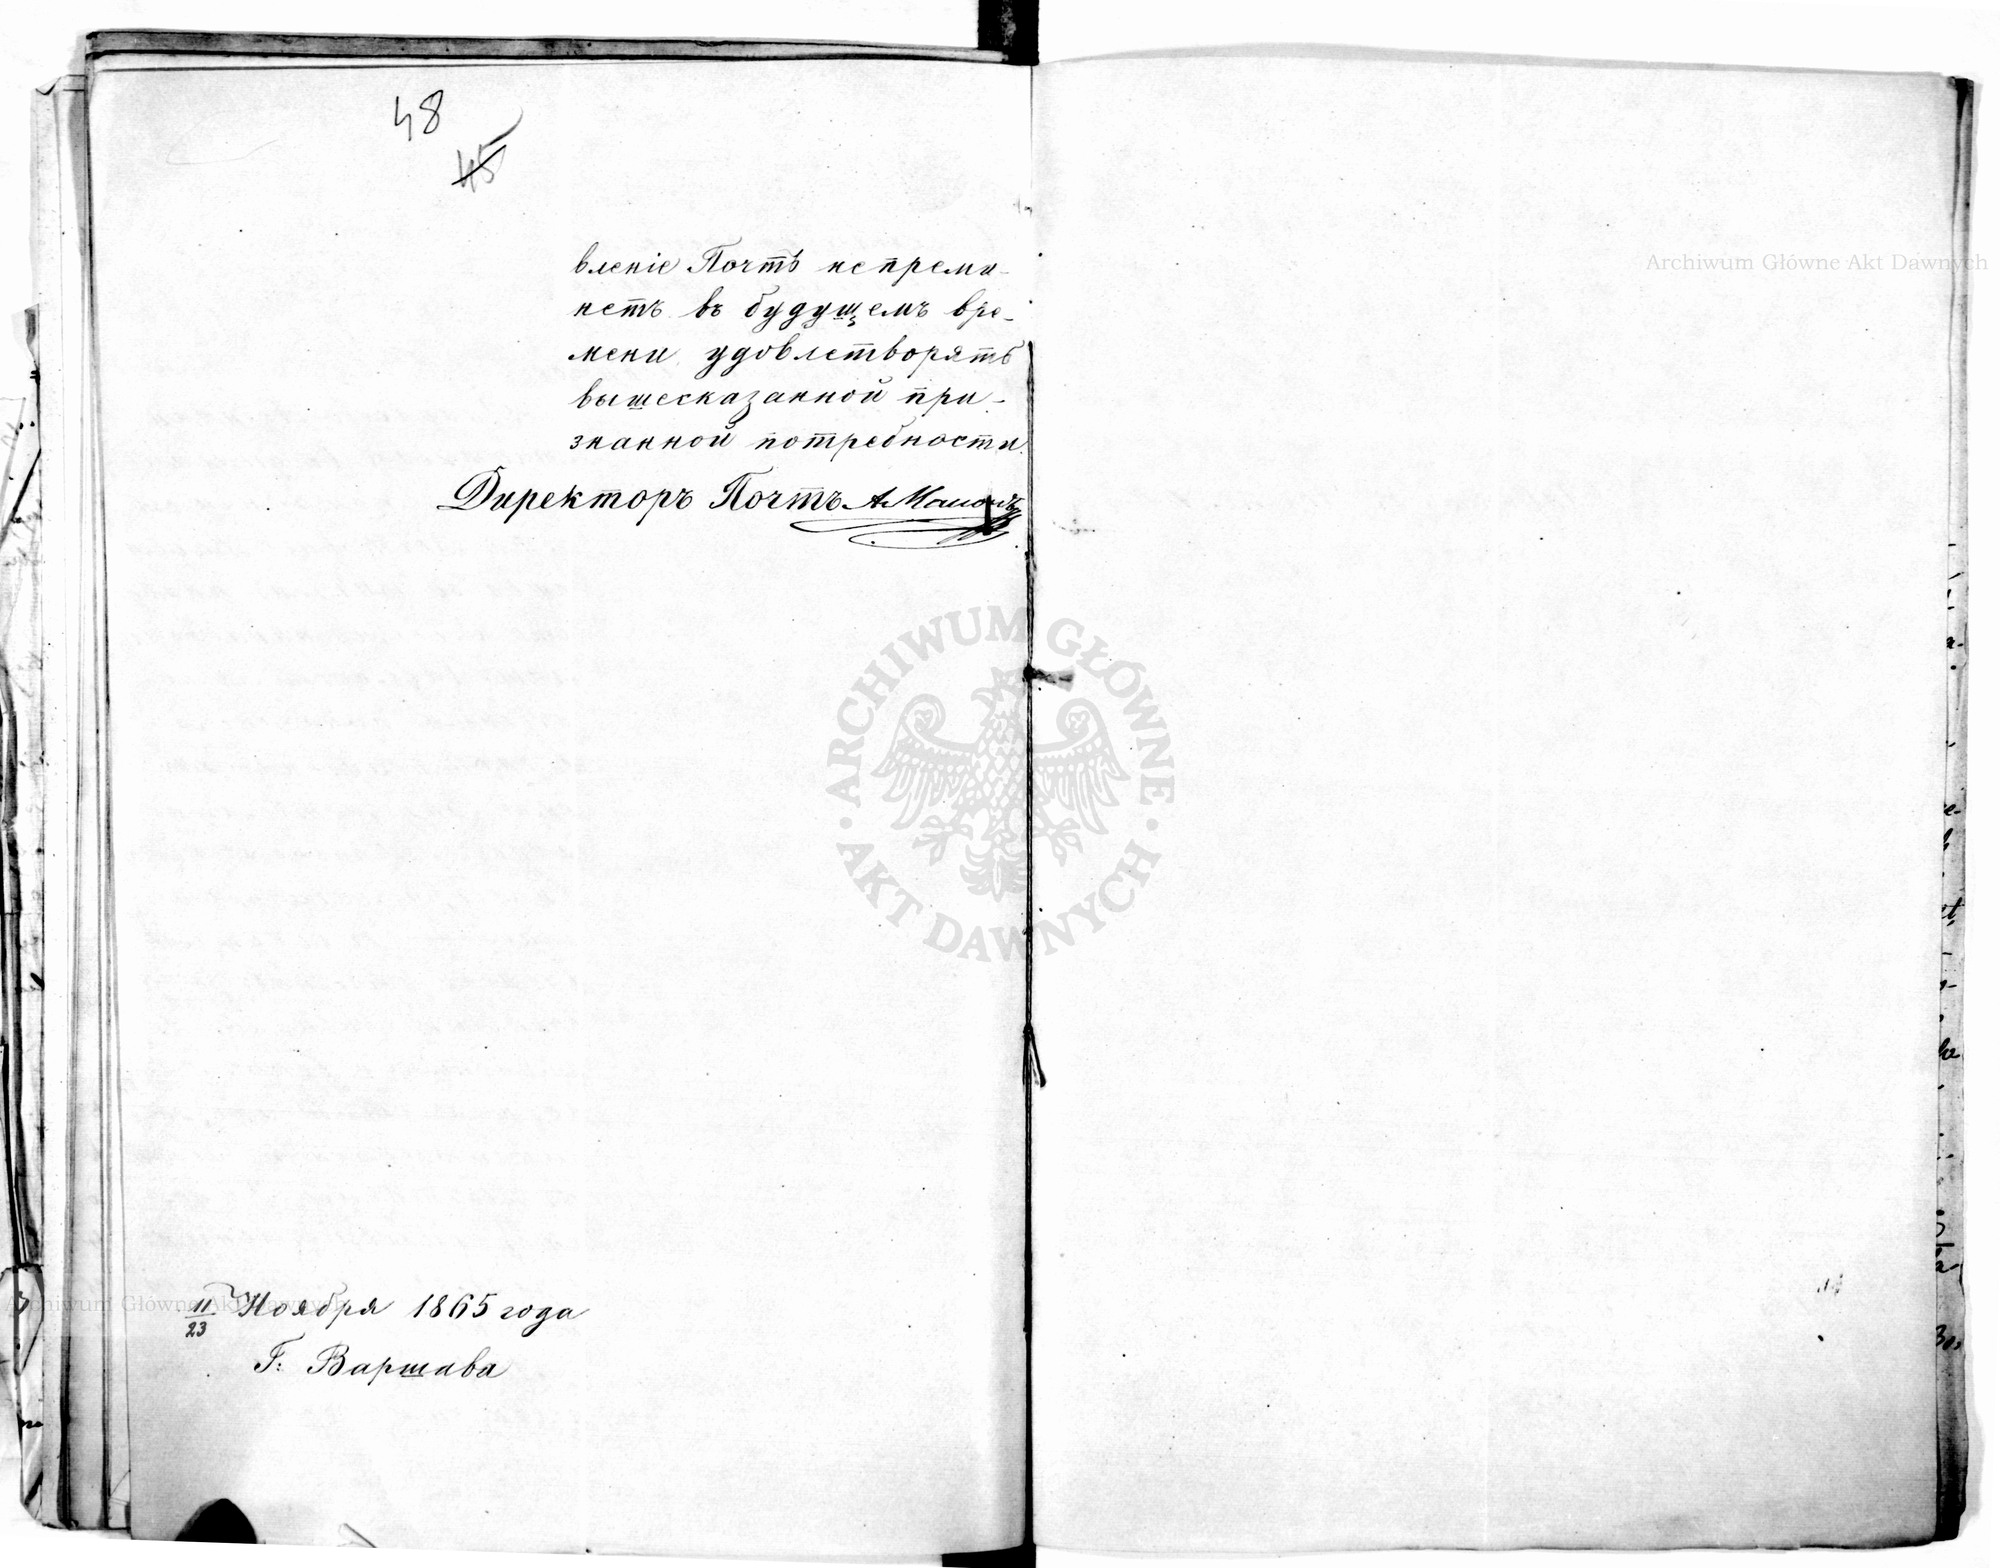 48
45
вленіе Почтъ непреми-
нетъ въ будущемъ вре-
мени удовлетворять
вышесказанной при-
знанной потребности.
Директоръ Почтъ А.
11/23 Ноября 1865 года
Г. Варшава
Archiwum Główne Akt Dawnych
Archiwum Główne Akt Dawnych
ARCHIWUM GŁÓWNE
AKT DAWNYCH